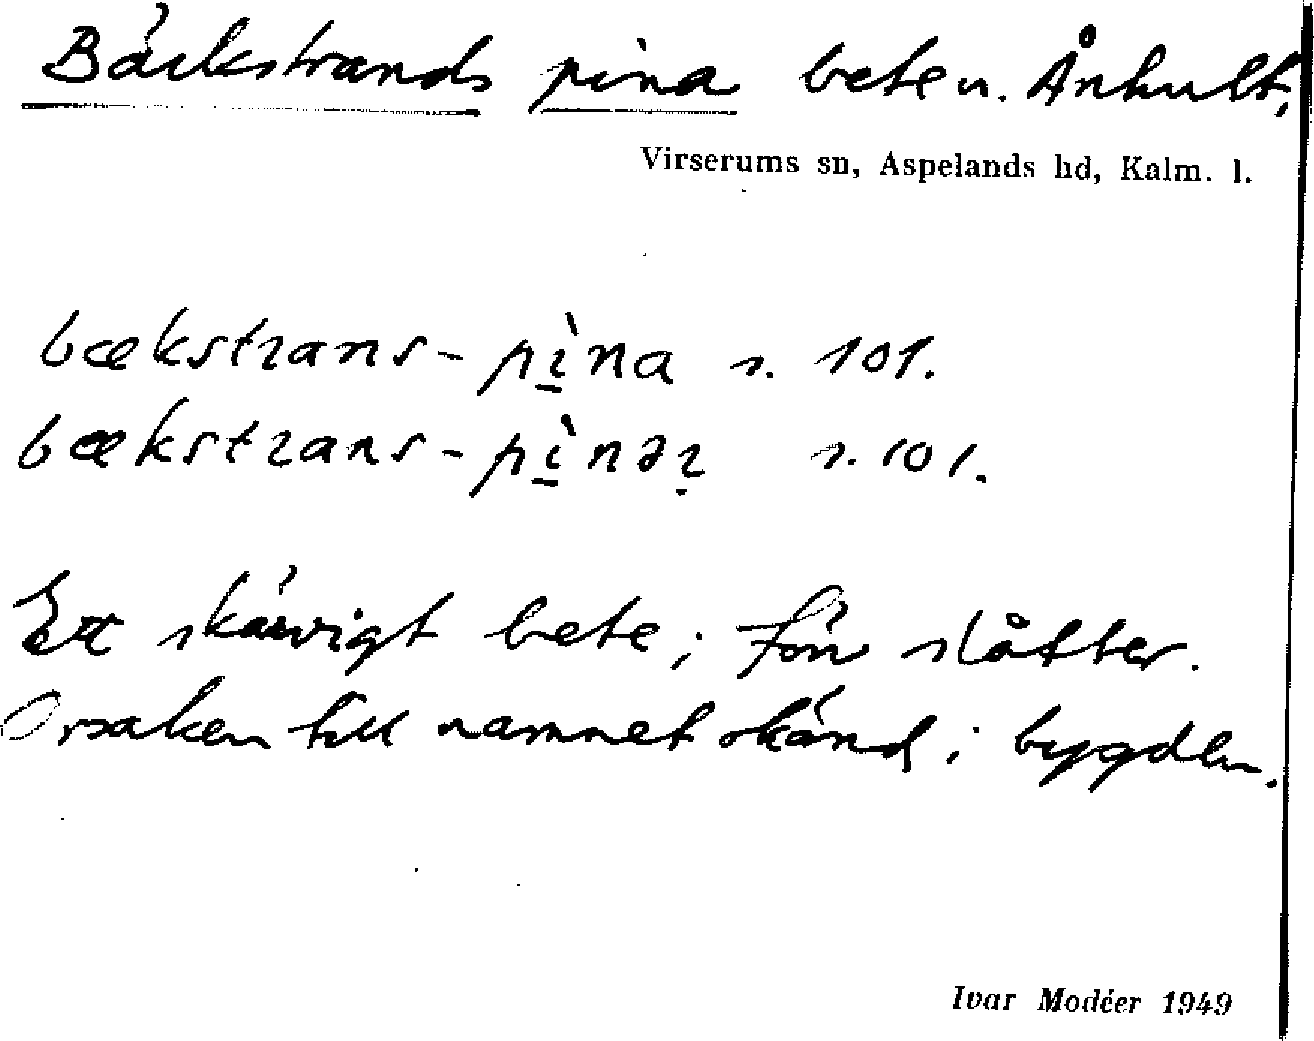 Bäckstrands pina bete u. Ånhult,
Virserums sn, Aspelands hd, Kalm. l.
bækstrans-pìna s. 101.
bækstrans-pìnəṛ s. 101.
Ett skärvigt bete; förr slåtter.
Orsaken till namnet okänd i bygden.
Ivar Modéer 1949